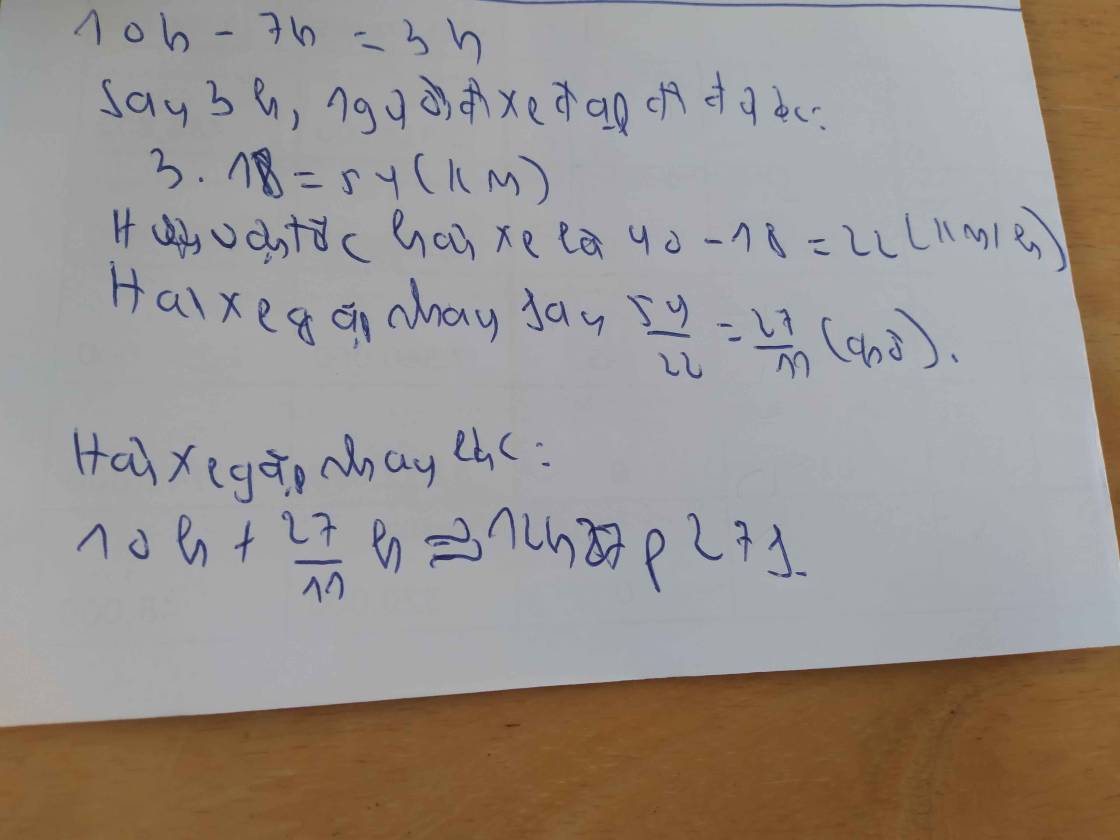 10h - 7h = 3h
Sau 3h, người đi xe đạp đi được:
3. 18 = 54 (km)
Hiệu vận tốc hai xe là 40 - 18 = 22 (km/h)
Hai xe gặp nhau sau 54/22 = 27/11 (giờ).
Hai xe gặp nhau lúc:
10h + 27/11 h = 12h 27p 27s